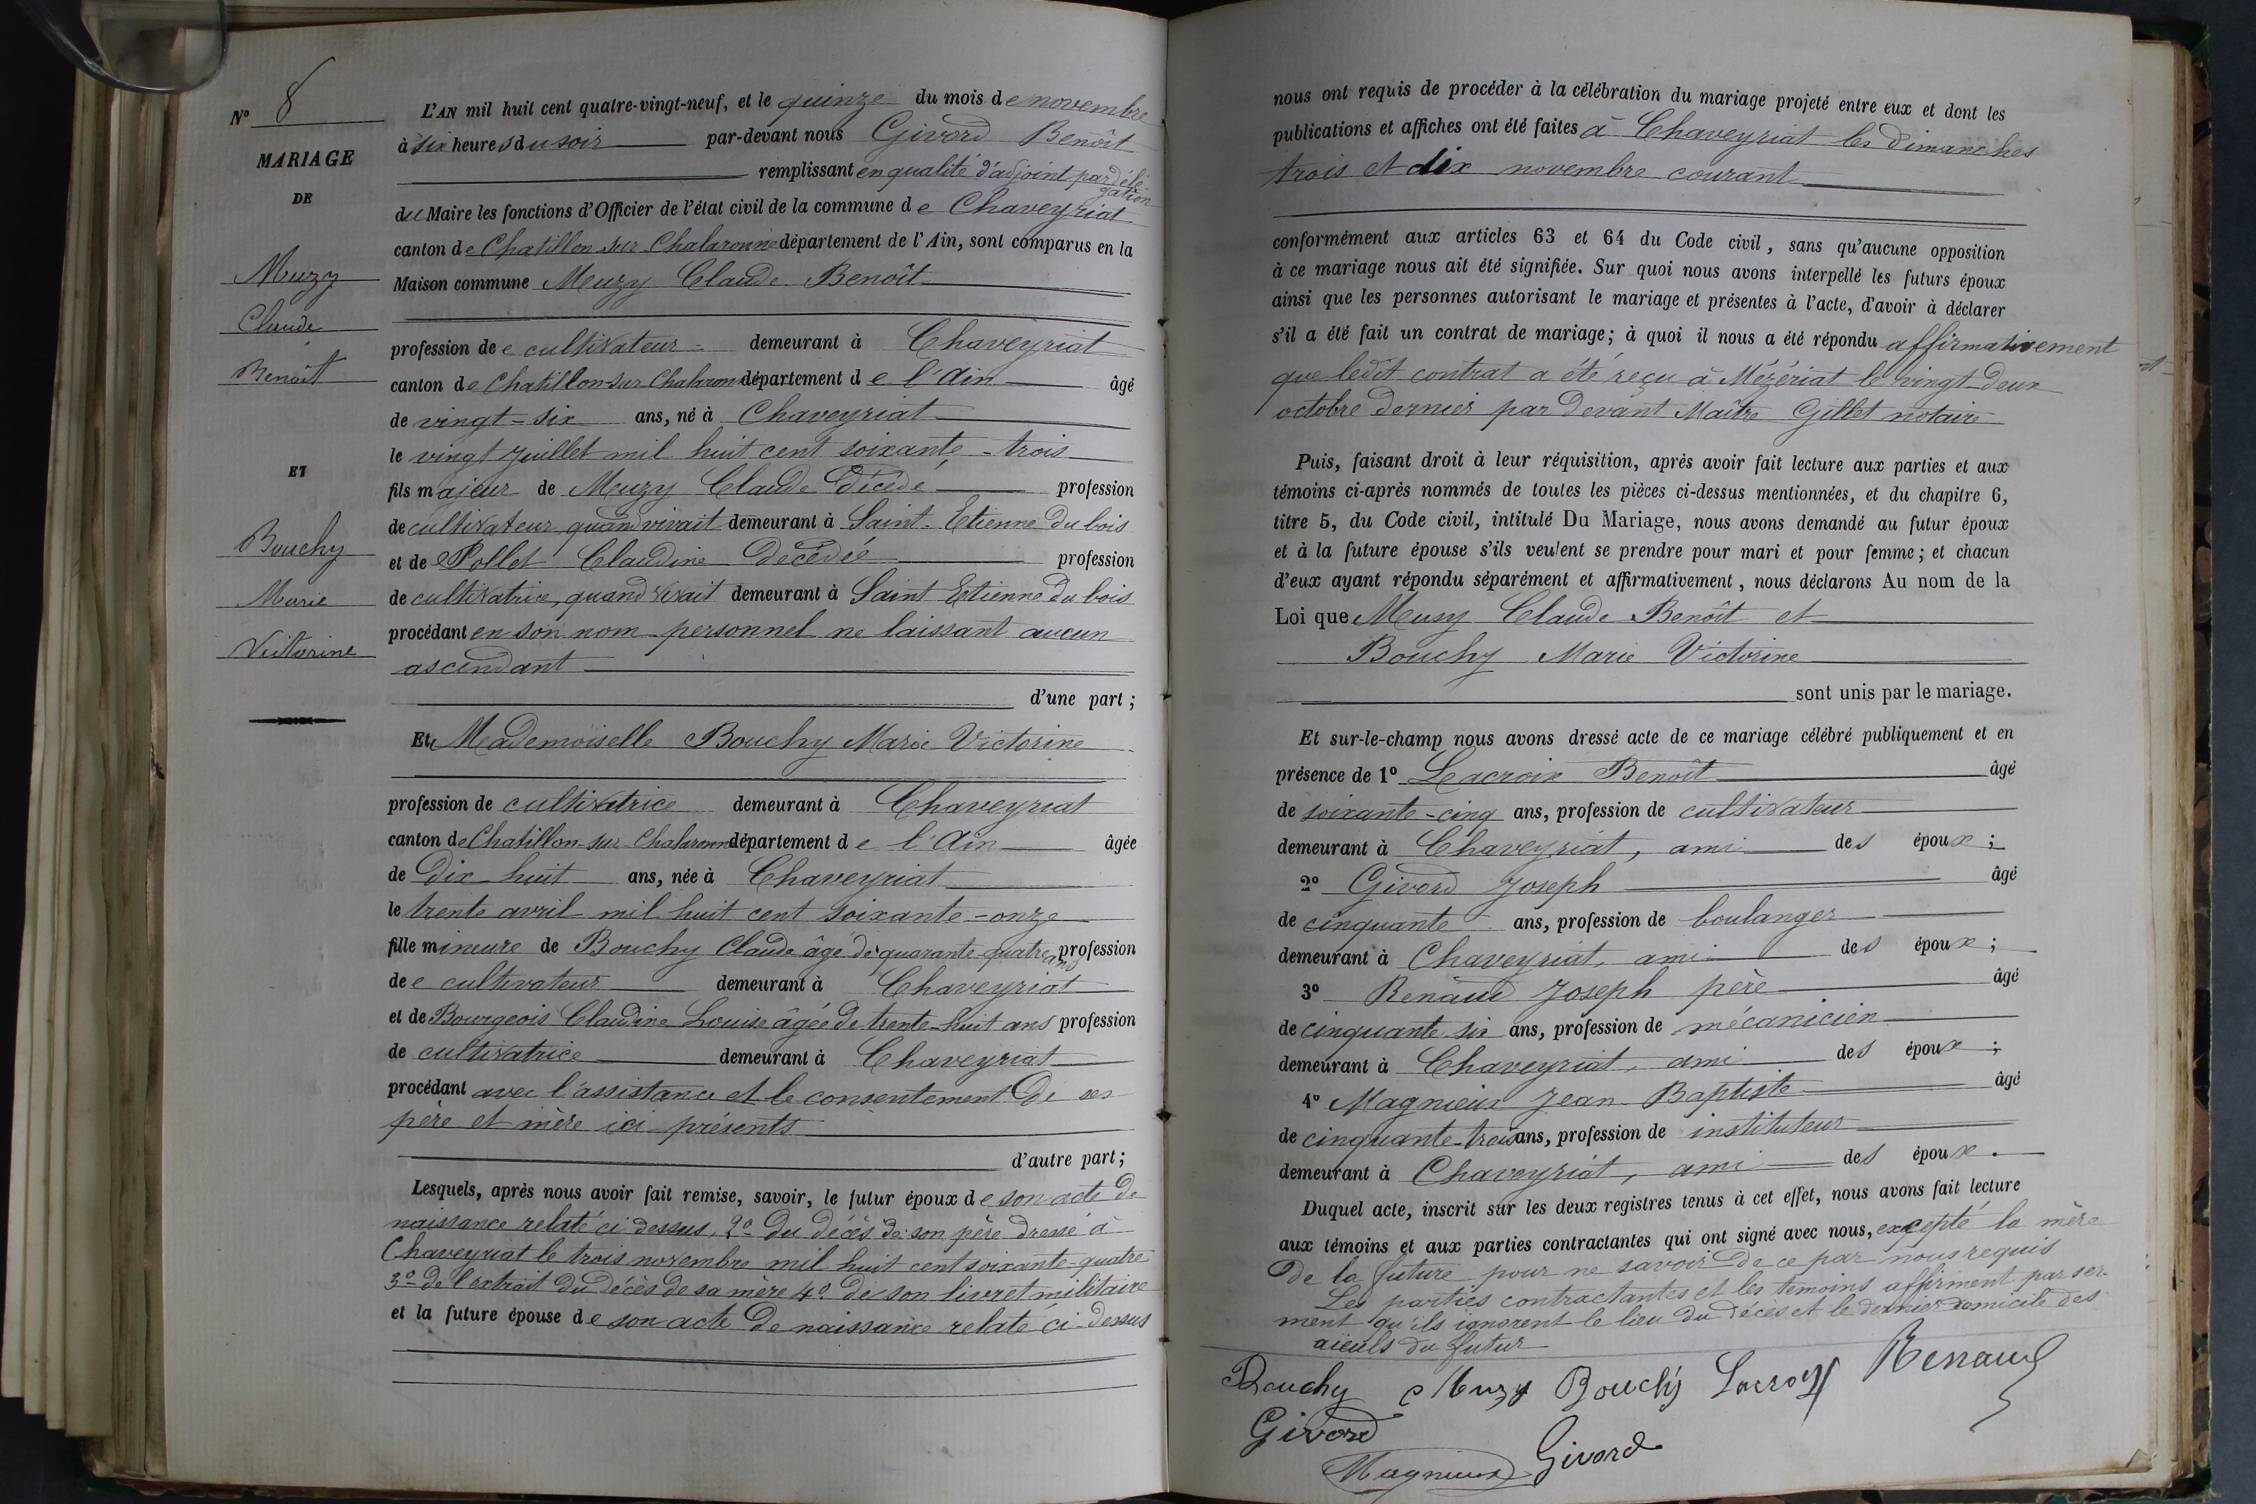 N° 8
MARIAGE
DE
Muzy
Claude
Benoît
ET
Bouchy
Marie
Victorine
L'AN mil huit cent quatre-vingt-neuf, et le quinze du mois de novembre
à six heures du soir par-devant nous Givord Benoît
remplissant en qualité d'adjoint par délégation
du Maire les fonctions d'Officier de l'état civil de la commune de Chaveyriat
canton de Chatillon sur Chalaronne département de l'Ain, sont comparus en la
Maison commune Muzy Claude Benoît
profession de cultivateur demeurant à Chaveyriat
canton de Chatillon sur Chalaronne département de l'Ain âgé
de vingt-six ans, né à Chaveyriat
le vingt juillet mil huit cent soixante-trois
fils majeur de Muzy Claude Décédé profession
de cultivateur quand vivait demeurant à Saint-Etienne du bois
et de Pollet Claudine Décédée profession
de cultivatrice, quand vivait demeurant à Saint Etienne du bois
procédant en son nom personnel ne laissant aucun
ascendant
d'une part ;
Et Mademoiselle Bouchy Marie Victorine
profession de cultivatrice demeurant à Chaveyriat
canton de Chatillon-sur Chalaronne département de l'Ain âgée
de Dix huit ans, née à Chaveyriat
le trente avril mil huit cent soixante-onze
fille mineure de Bouchy Claude âgé de quarante quatre ans profession
de cultivateur demeurant à Chaveyriat
et de Bourgeois Claudine Louise âgée de trente-huit ans profession
de cultivatrice demeurant à Chaveyriat
procédant avec l'assistance et le consentement de ses
père et mère ici présents
d'autre part ;
Lesquels, après nous avoir fait remise, savoir, le futur époux de son acte de
naissance relaté ci dessus, 2° du décès de son père dressé à
Chaveyriat le trois novembre mil huit cent soixante-quatre
3° de l'extrait du décès de sa mère 4° de son livret militaire
et la future épouse de son acte de naissance relaté ci-dessus
nous ont requis de procéder à la célébration du mariage projeté entre eux et dont les
publications et affiches ont été faites à Chaveyriat les dimanches
trois et dix novembre courant
conformément aux articles 63 et 64 du Code civil, sans qu'aucune opposition
à ce mariage nous ait été signifiée. Sur quoi nous avons interpellé les futurs époux
ainsi que les personnes autorisant le mariage et présentes à l'acte, d'avoir à déclarer
s'il a été fait un contrat de mariage ; à quoi il nous a été répondu affirmativement
que ledit contrat a été reçu à Mézériat le vingt-deux
octobre dernier par devant Maître Gillet notaire
Puis, faisant droit à leur réquisition, après avoir fait lecture aux parties et aux
témoins ci-après nommés de toutes les pièces ci-dessus mentionnées, et du chapitre 6,
titre 5, du Code civil, intitulé Du Mariage, nous avons demandé au futur époux
et à la future épouse s'ils veulent se prendre pour mari et pour femme ; et chacun
d'eux ayant répondu séparément et affirmativement, nous déclarons Au nom de la
Loi que Muzy Claude Benoît et
Bouchy Marie Victorine
sont unis par le mariage.
Et sur-le-champ nous avons dressé acte de ce mariage célébré publiquement et en
présence de 1° Lacroix Benoît âgé
de soixante-cinq ans, profession de cultivateur
demeurant à Chaveyriat, ami des époux ;
2° Givord Joseph âgé
de cinquante ans, profession de boulanger
demeurant à Chaveyriat, ami des époux ;
3° Renaud Joseph père âgé
de cinquante six ans, profession de mécanicien
demeurant à Chaveyriat, ami des époux ;
4° Magnieux Jean-Baptiste âgé
de cinquante-trois ans, profession de instituteur
demeurant à Chaveyriat, ami des époux.
Duquel acte, inscrit sur les deux registres tenus à cet effet, nous avons fait lecture
aux témoins et aux parties contractantes qui ont signé avec nous, excepté la mère
De la future pour ne savoir de ce par nous requis
Les parties contractantes et les témoins affirment par ser-
ment qu'ils ignorent le lieu du décès et le dernier domicile des
aïeuls du futur
Bouchy Muzy Bouchy Lacroix Renaud
Givord
Magnieux Givord